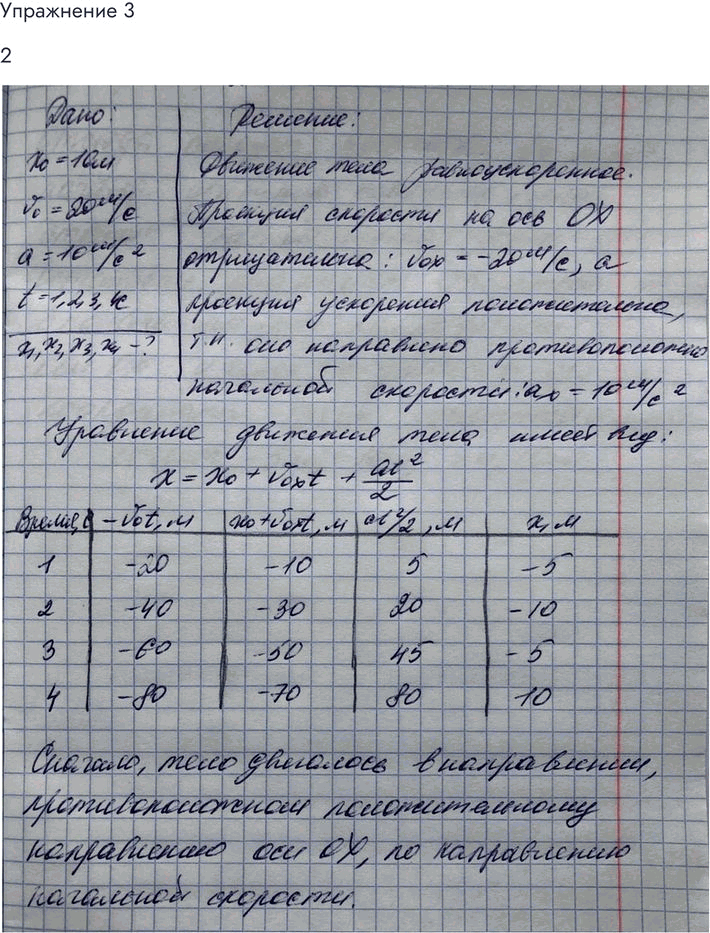 Упражнение 3
2
Дано:
x₀ = 10м
v₀ = 20 м/с
a = 10 м/с²
t = 1, 2, 3, 4с
x₁, x₂, x₃, x₄ - ?
Решение:
Движение тела равноускоренное.
Проекция скорости на ось OX
отрицательна: v₀ₓ = -20 м/с, а
проекция ускорения положительна,
т.к. оно направлено противоположно
начальной скорости: aₓ = 10 м/с²
Уравнение движения тела имеет вид:
x = x₀ + v₀ₓt + at²/2
Время, с | -v₀t, м | x₀+v₀ₓt, м | at²/2, м | x, м
1 | -20 | -10 | 5 | -5
2 | -40 | -30 | 20 | -10
3 | -60 | -50 | 45 | -5
4 | -80 | -70 | 80 | 10
Сначало, тело двигалось в направлении,
противоположном положительному
направлению оси OX, по направлению
начальной скорости.